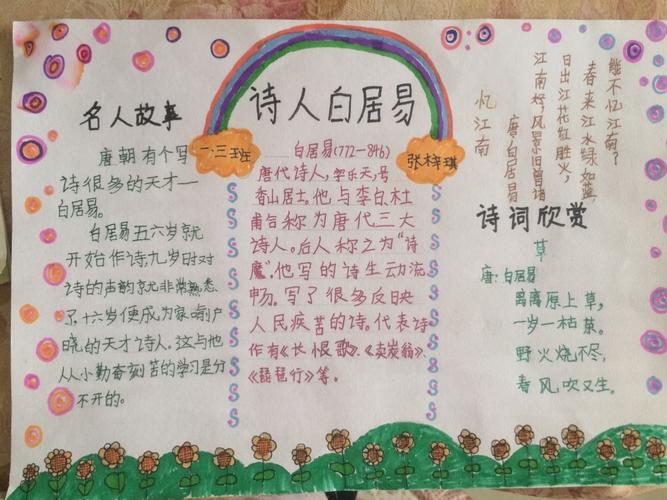 诗人白居易
一.三班
张梓琪
名人故事
唐朝有个写
诗很多的天才一
白居易。
白居易五六岁就
开始作诗,九岁时对
诗的声韵就非常熟悉
了,十六岁便成为家喻户
晓的天才诗人。这与他
从小勤奋刻苦的学习是分
不开的。
白居易(772-846)
唐代诗人,字乐天,号
香山居士。他与李白、杜
甫合称为唐代三大
诗人。后人称之为“诗
魔”,他写的诗生动流
畅。写了很多反映
人民疾苦的诗。代表诗
作有《长恨歌》、《卖炭翁》、
《琵琶行》等。
忆江南
唐白居易
江南好,风景旧曾谙
日出江花红胜火,
春来江水绿如蓝
能不忆江南?
诗词欣赏
草
唐:白居易
离离原上草,
一岁一枯荣。
野火烧不尽,
春风吹又生。